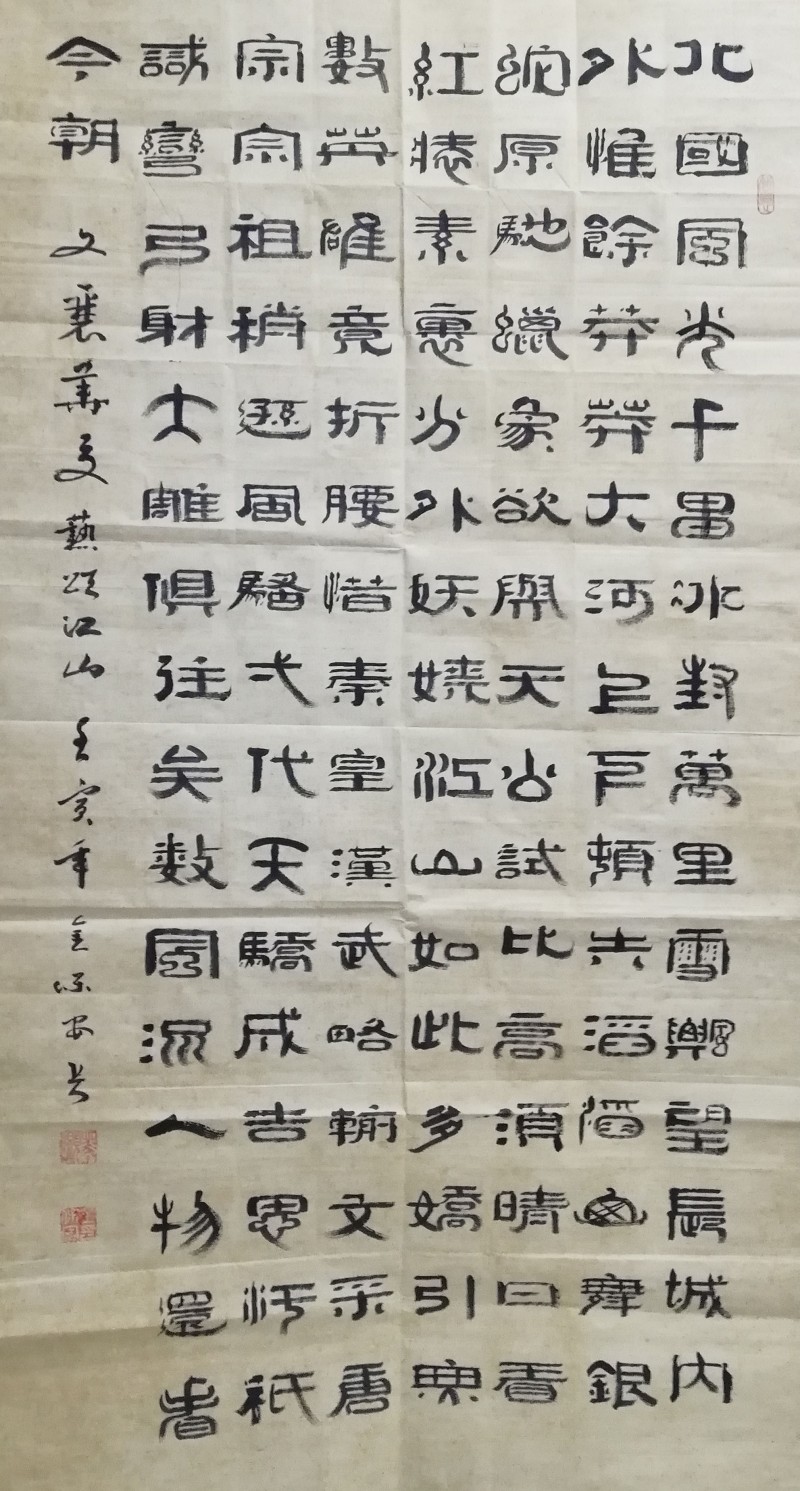 北國風光千里冰封萬里雪飄望長城內
外惟餘莽莽大河上下頓失滔滔山舞銀
蛇原馳蠟象欲與天公試比高須晴日看
紅裝素裹分外妖嬈江山如此多嬌引無
數英雄竟折腰惜秦皇漢武略輸文采唐
宗宗祖稍遜風騷弌代天驕成吉思汗祇
識彎弓射大雕俱往矣數風流人物還看
今朝 文襄華夏藝頌江山 壬寅年 金保安书